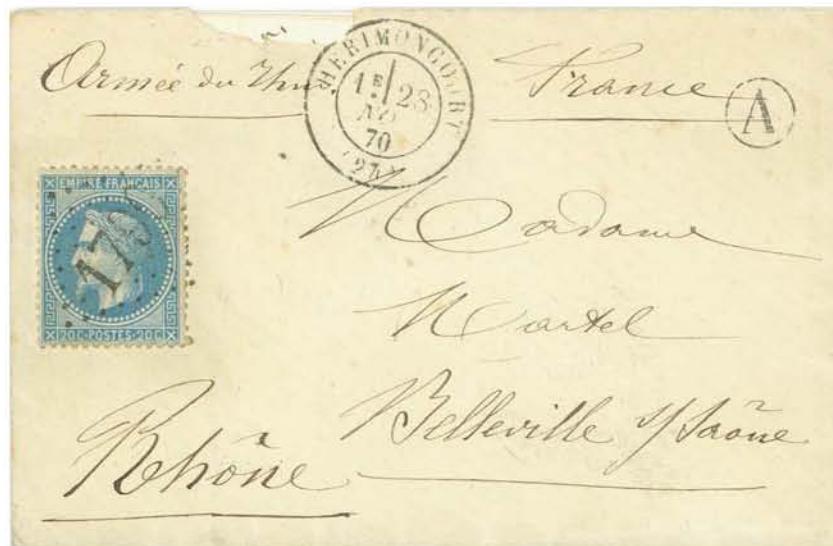 Armée du Rhin France
HERIMONCOURT
1E 28
70
A
EMPIRE FRANÇAIS
20C·POSTES·20C
Madame
Martel
Belleville s/ Saône
Rhône